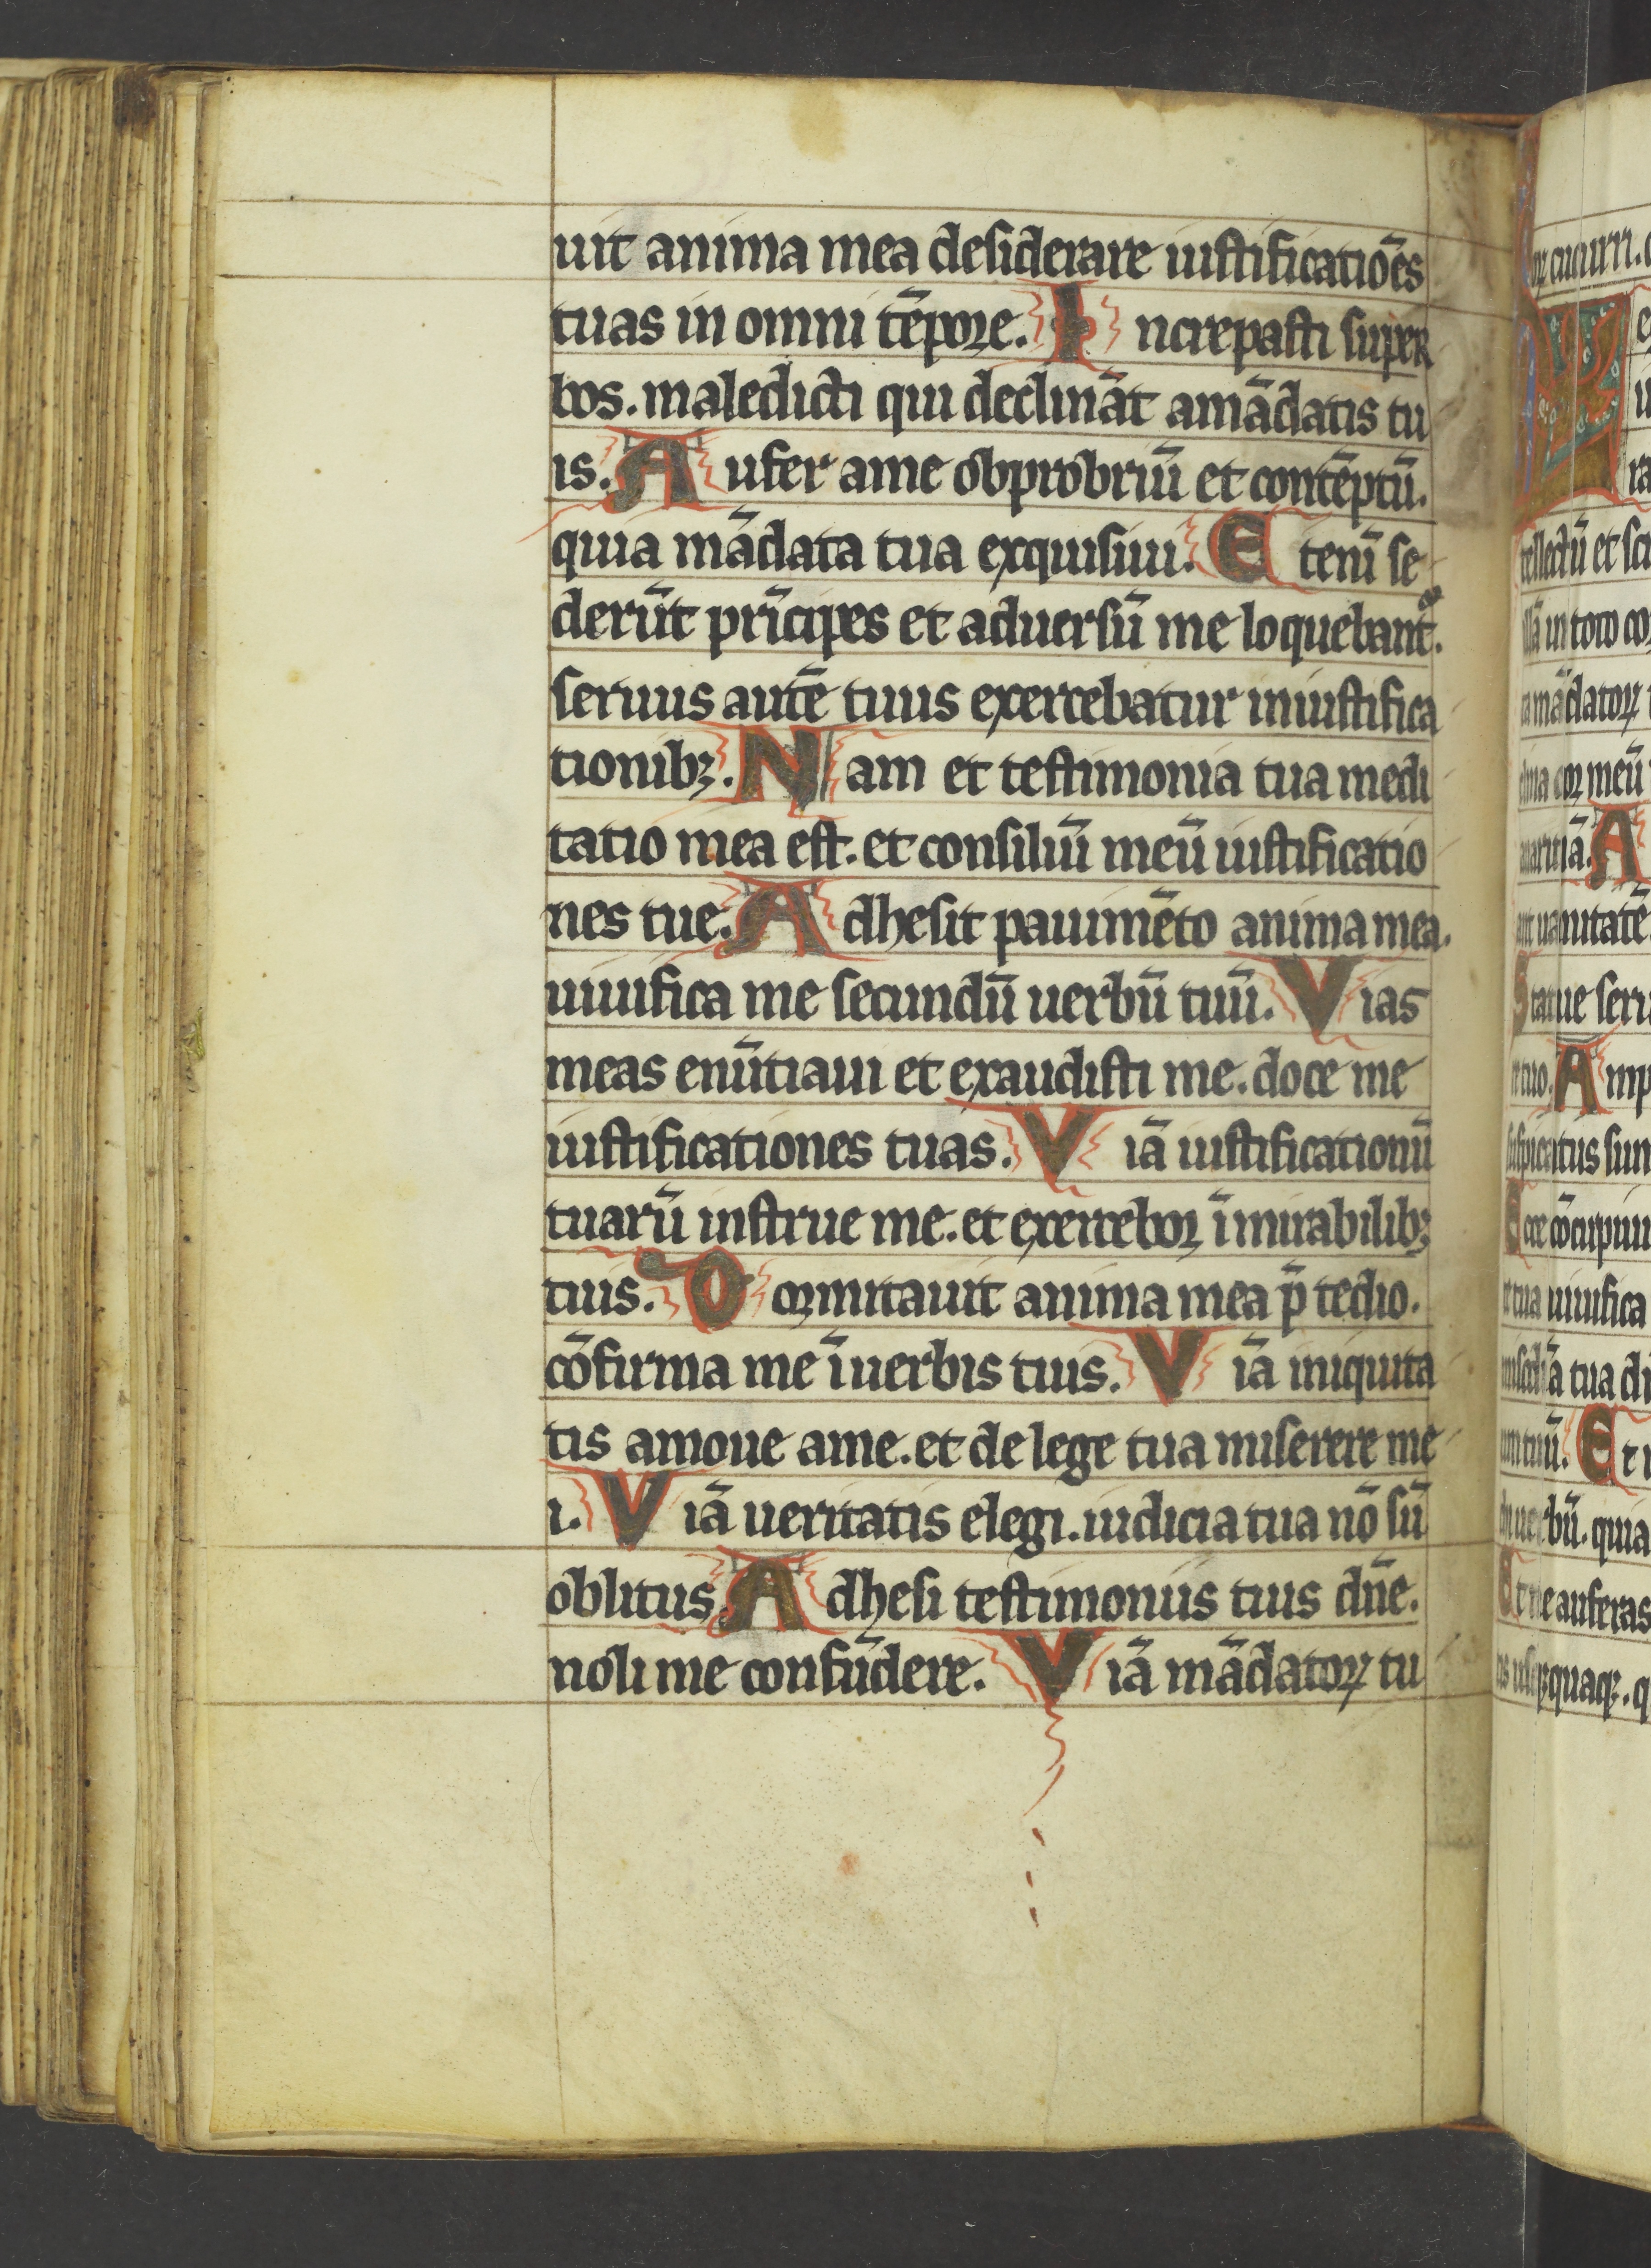 uit anima mea desiderare iustificatiōes
tuas in omni tēpoꝛe. Increpasti super
bos. maledicti qui declināt amādatis tu
is. Aufer ame obprobriū et contēptū.
quia mādata tua exquisiui. Etenī se
derūt prīcipes et aduersū me loquebant᷑.
seruus autē tuus exercebatur iniustifica
tionibꝫ. Nam et testimonia tua medi
tatio mea est. et consiliū meū iustificatio
nes tue. Adhesit pauimēto anima mea.
uiuifica me secundū uerbū tuū. Vias
meas enūtiaui et exaudisti me. doce me
iustificationes tuas. Viā iustificationū
tuarū instrue me. et exerceboꝛ ī mirabilibꝫ
tuis. Doꝛmitauit anima mea p̄ tedio.
cōfirma me ī uerbis tuis. Viā iniquita
tis amoue ame. et de lege tua miserere me
i. Viā ueritatis elegi. iudicia tua nō sū
oblitus. Adhesi testimoniis tuis dn̄e.
noli me confūdere. Viā mādatoꝝ tu
tellectū et scr
in toto co
mādatoꝝ
meū
A
uanitatē
Statue seru
tuo. Amp
sun
Ecce cōcupiui
tua uiuifica
tua di
tuū. Et
uerbū. quia
Et ne auferas
quaqꝫ. q